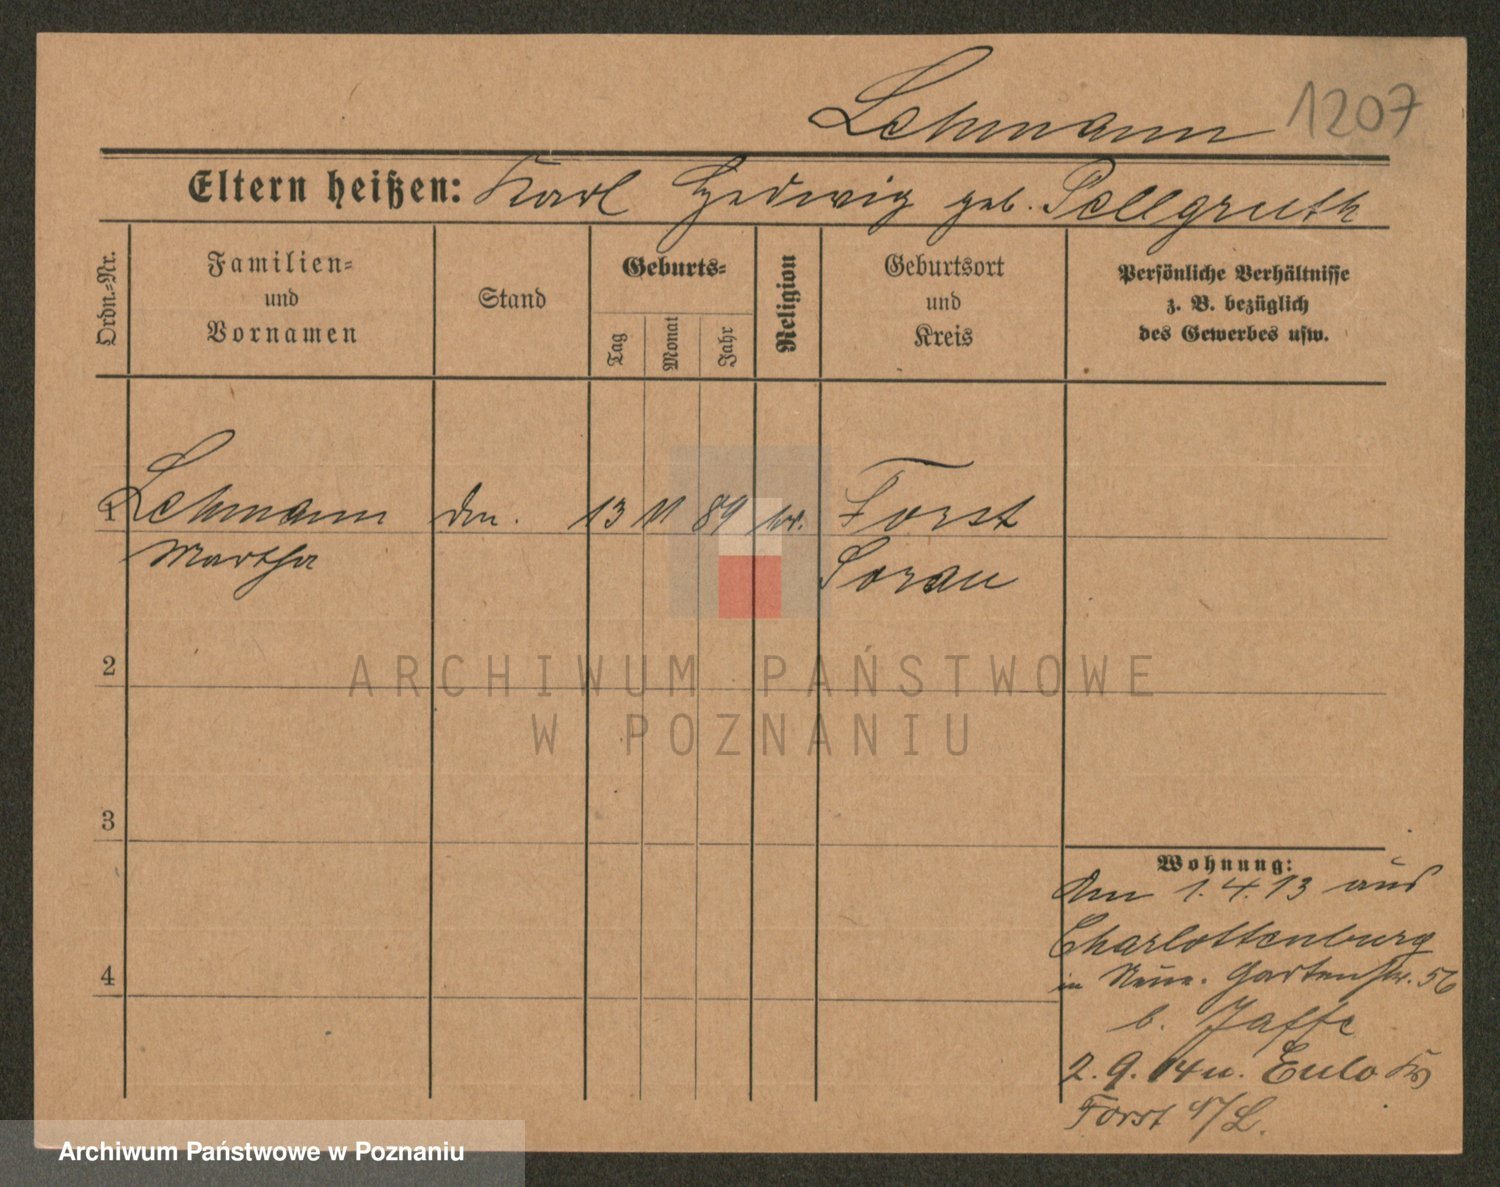 Lehmann 1207
Eltern heißen: Karl Hedwig geb. Pellgruth
Ordn.-Nr.
Familien-
und
Vornamen
Stand
Geburts-
Tag
Monat
Jahr
Religion
Geburtsort
und
Kreis
Persönliche Verhältnisse
z. B. bezüglich
des Gewerbes usw.
1 Lehmann 13 11 89 Forst
Martha Sorau
2
ARCHIWUM PAŃSTWOWE
W POZNANIU
3
Wohnung:
Am 1.4.13 aus
Charlottenburg
4
in Gartenstr. 56
b. Jaffe
2.9.14 n. Eulo Kr
Forst /L.
Archiwum Państwowe w Poznaniu